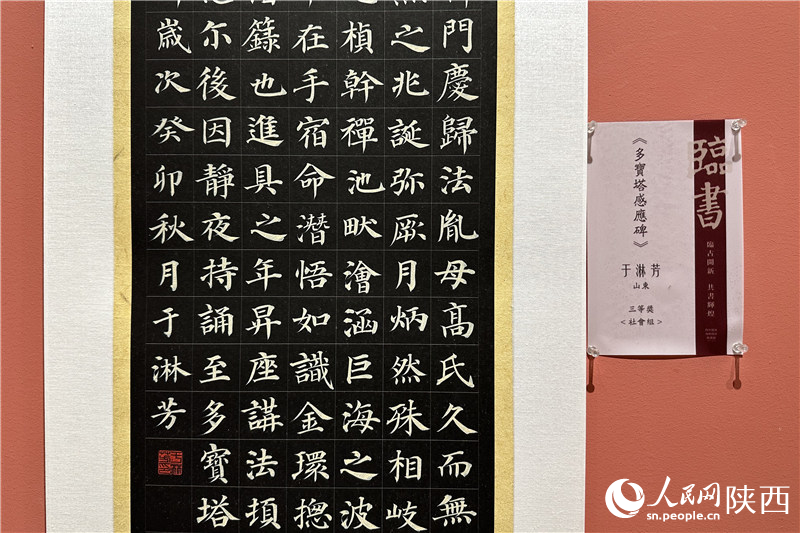 門慶歸法胤母髙氏久而無
之兆誕弥厥月炳然殊相岐
楨幹禪池畎澮涵巨海之波
在手宿命潜悟如識金環揔
籙也進具之年昇座講法頂
尓後因靜夜持誦至多寶塔
歲次癸卯秋月于淋芳
臨書
臨古開新 共書輝煌
《多寶塔感應碑》
于淋芳
山東
三等獎
<社會組>
人民网 陕西
sn.people.cn